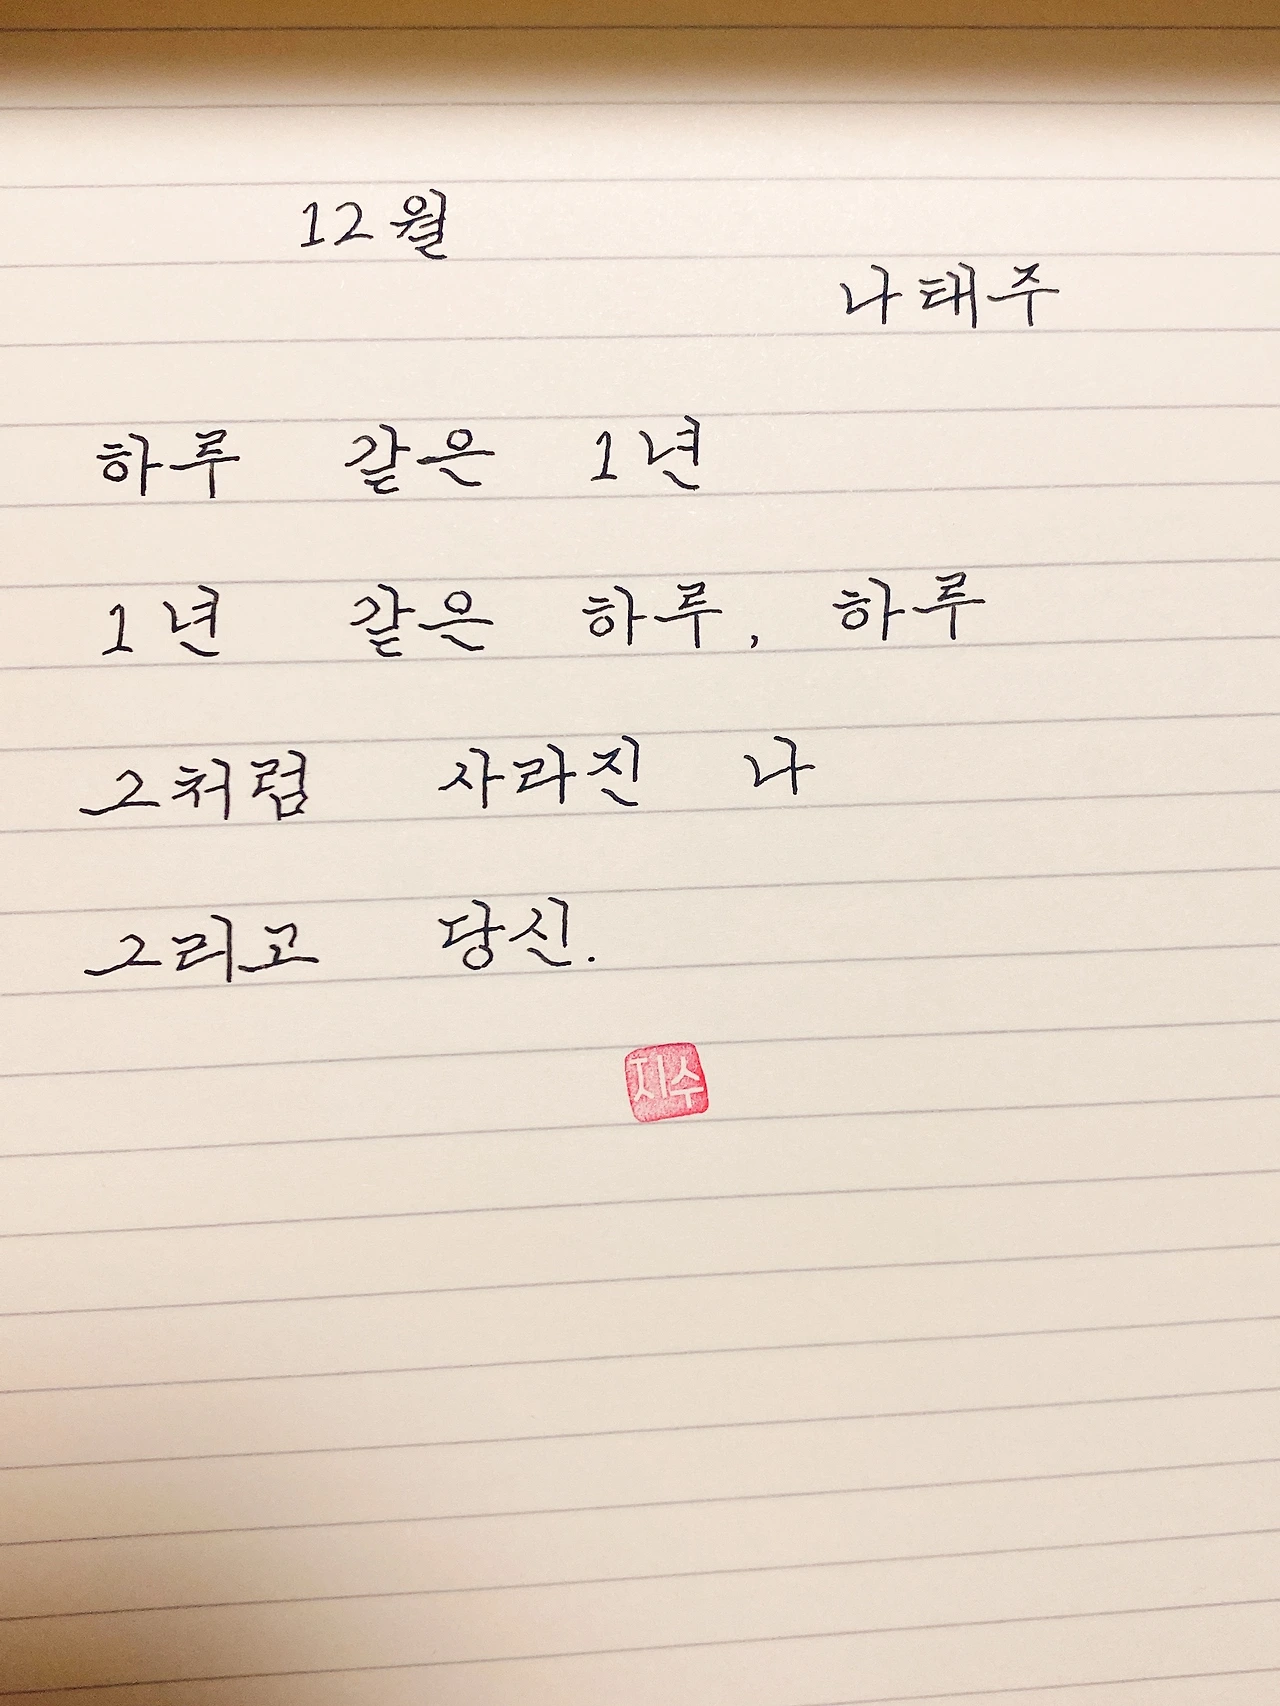 12월
나태주
하루 같은 1년
1년 같은 하루, 하루
그처럼 사라진 나
그리고 당신.
지수